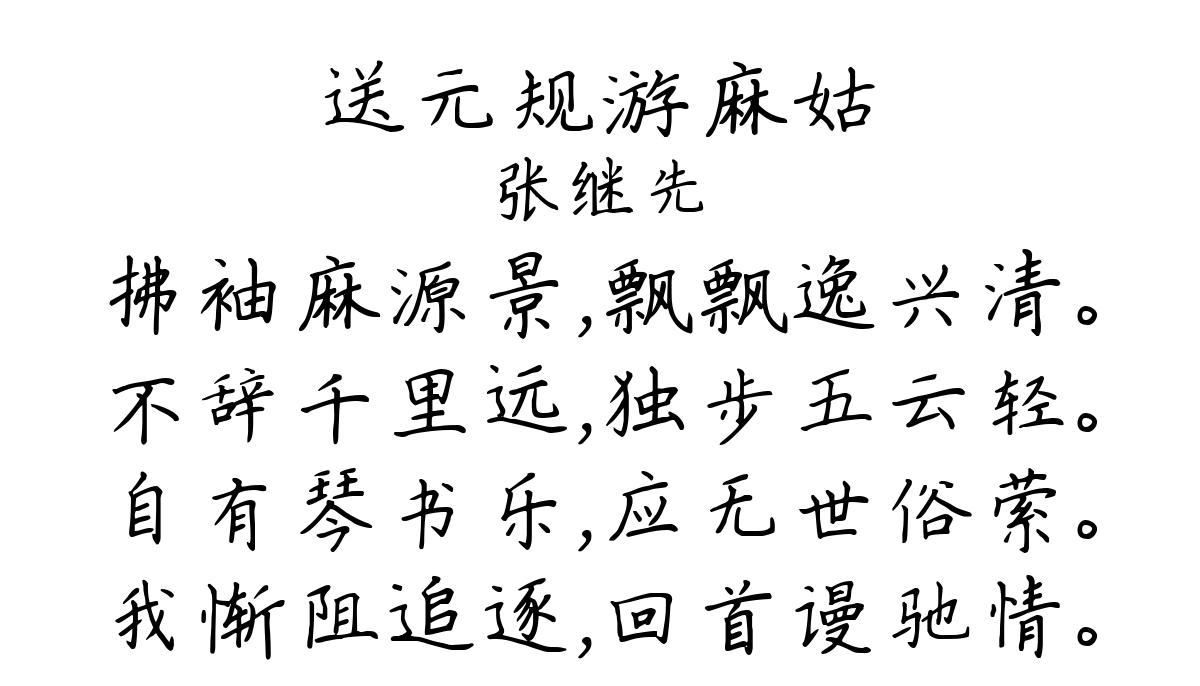 送元规游麻姑
张继先
拂袖麻源景,飘飘逸兴清。
不辞千里远,独步五云轻。
自有琴书乐,应无世俗萦。
我惭阻追逐,回首谩驰情。